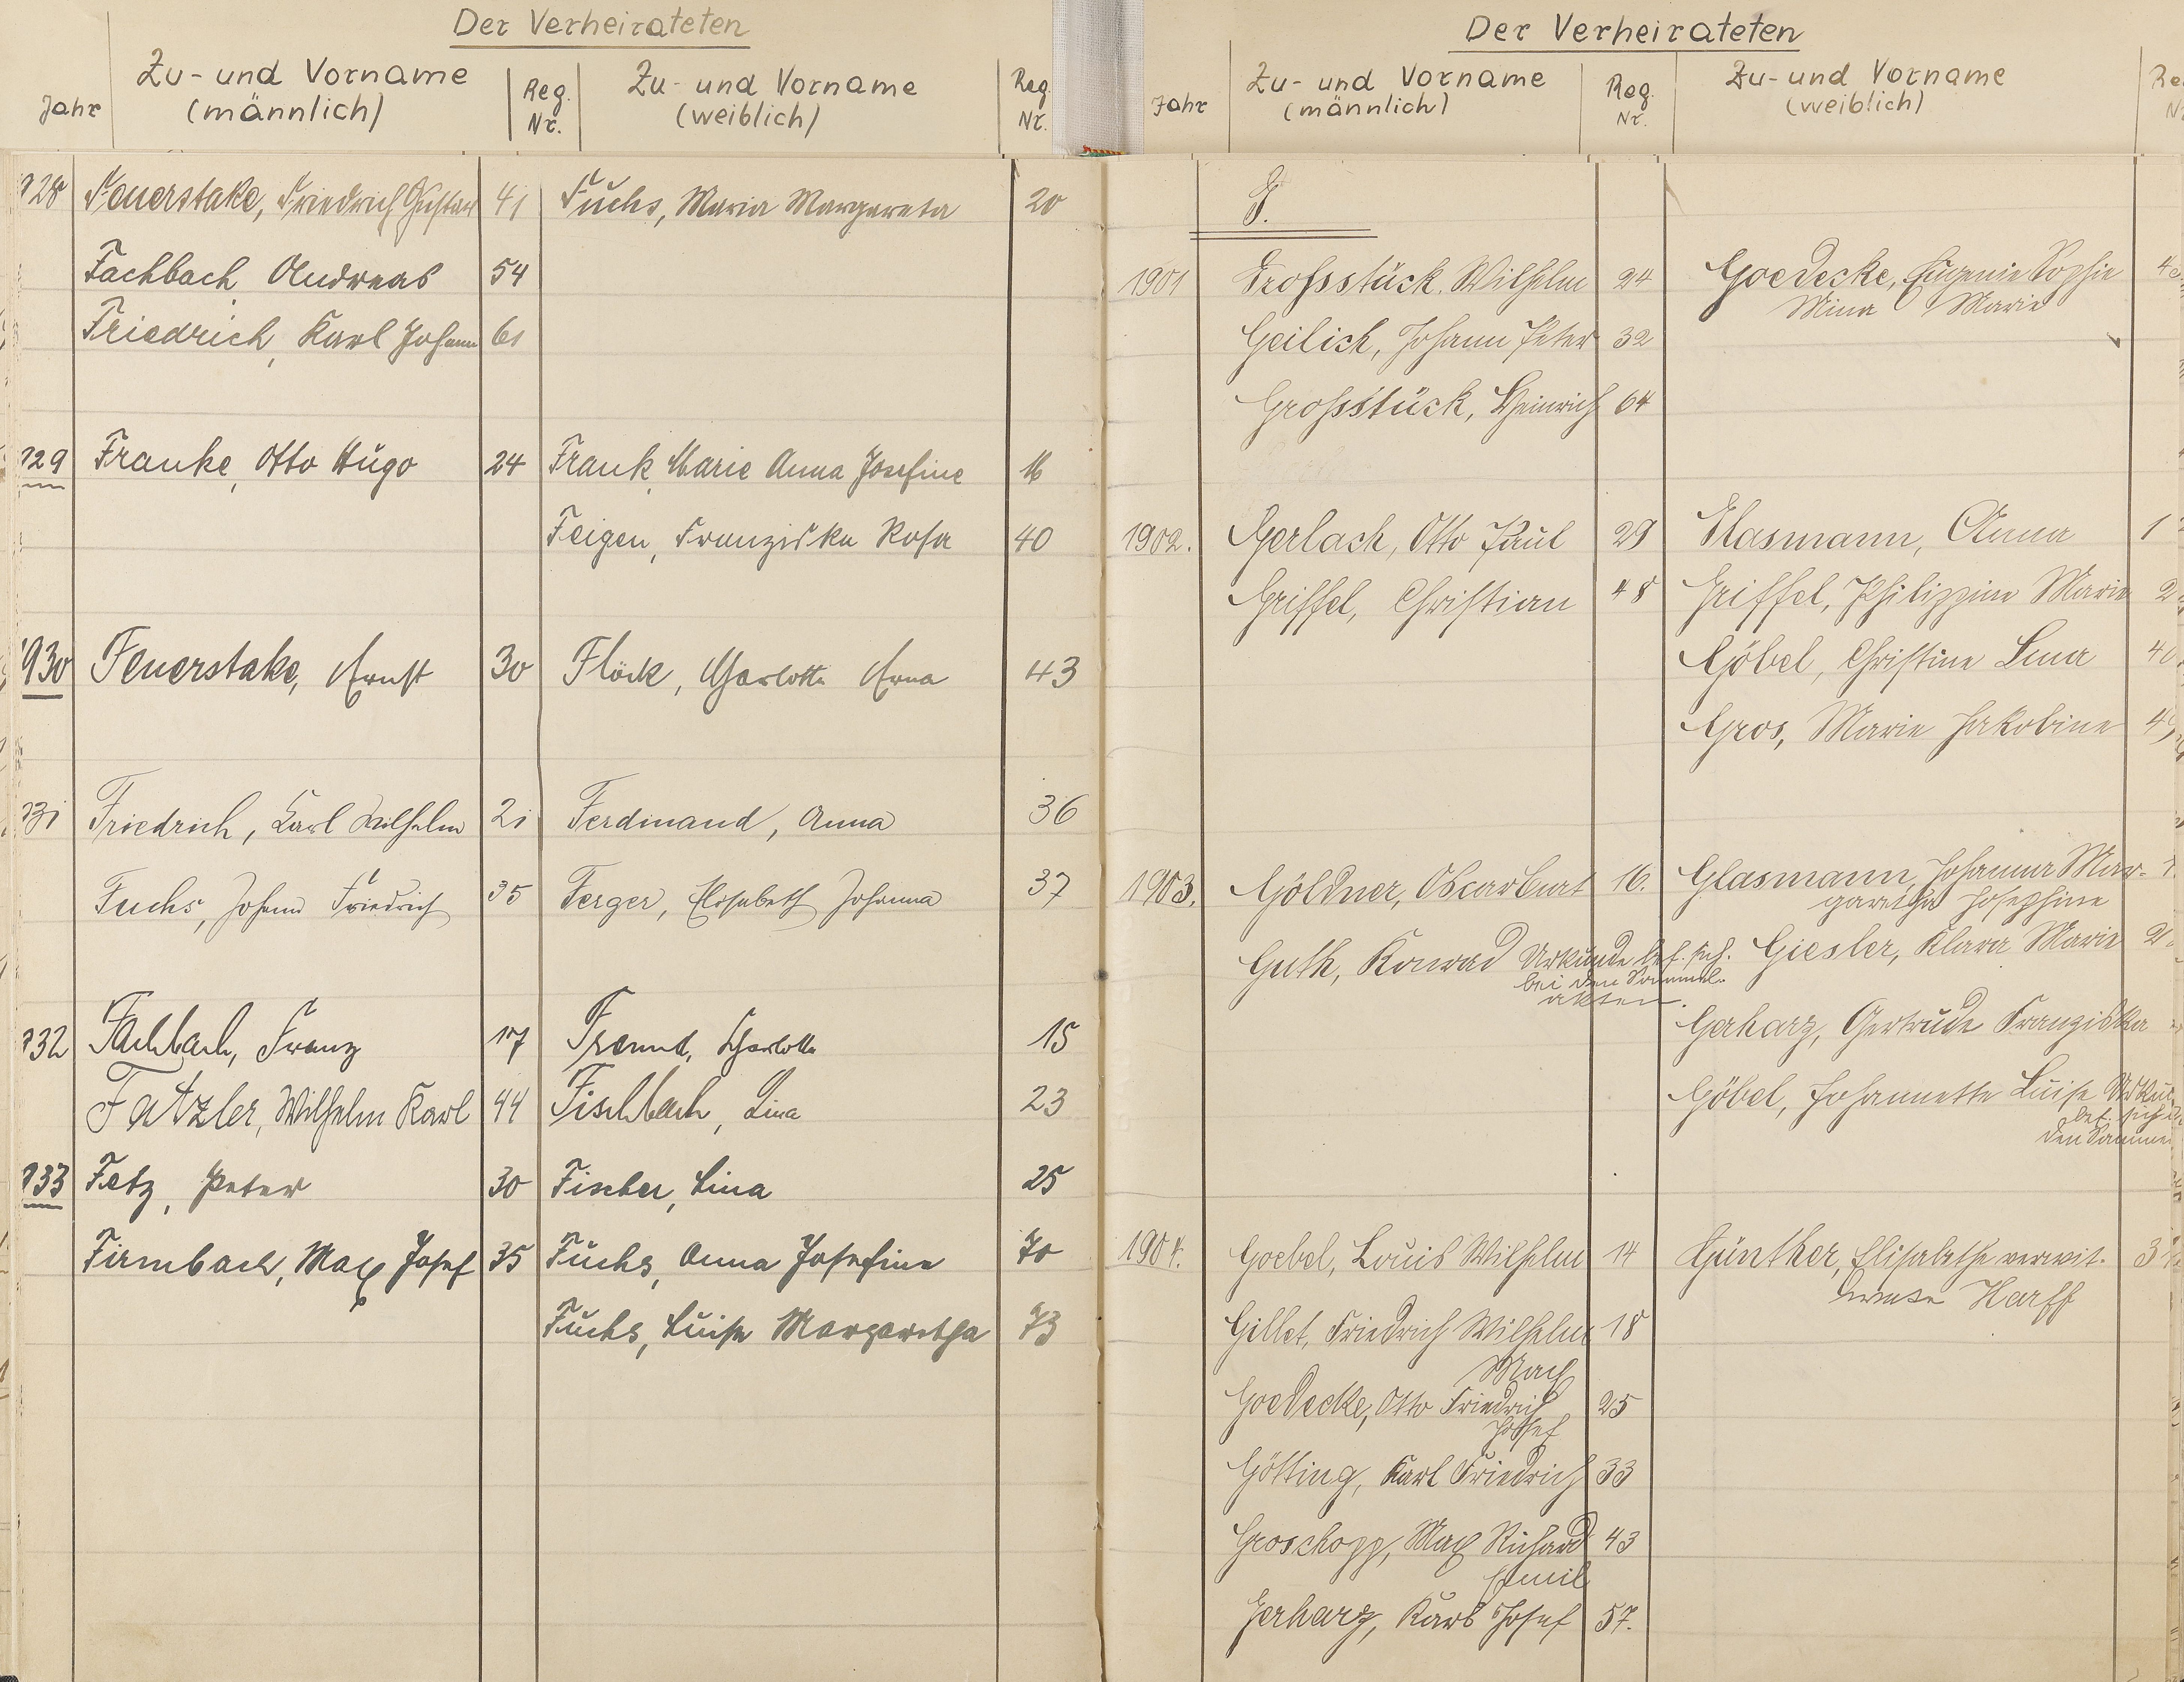 Der Verheirateten
Jahr Zu- und Vorname (männlich) Reg. Nr. Zu- und Vorname (weiblich) Reg. Nr.
928 Feuerstake, Friedrich Gustav 41 Fuchs, Maria Margareta 20
Fachbach Andreas 54
Friedrich, Karl Johann 61
929 Franke, Otto Hugo 24 Frank, Marie Anna Josefine 16
Feigen, Franziska Rosa 40
1930 Feuerstake, Ernst 30 Flöck, Charlotte Erna 43
931 Friedrich, Karl Wilhelm 21 Ferdinand, Anna 36
Fuchs, Johann Friedrich 35 Ferger, Elisabeth Johanna 37
932 Fachbach, Franz 17 Freund, Charlotte 15
Fatzler, Wilhelm Karl 44 Fischbach, Lina 23
933 Fetz, Peter 30 Fischer, Lina 25
Firmbach, Max Josef 35 Fuchs, Anna Josefine 70
Fuchs, Luise Margaretha 73
Der Verheirateten
Jahr Zu- und Vorname (männlich) Reg. Nr. Zu- und Vorname (weiblich)
G.
1901 Grossstück, Wilhelm 24 Goedecke, Eugenie Sophie
Mina Marie
Geilich, Johann Peter 32
Grossstück, Heinrich 64
1902. Gerlach, Otto Paul 29 Glasmann, Anna 1
Griffel, Christian 48 Griffel, Philippine Marie 2
Göbel, Christine Lina 40
Gros, Marie Jakobine 4
1903. Göldner, Oscar Curt 16. Glasmann, Johanna Mar-
garetha Josephine
Guth, Konrad Urkunde bef. sich. Giesler, Klara Marie 2
bei den Sammel-
akten.
Gerharz, Gertrude Franziska
Göbel, Johannette Luise Urku
bef. sich
den Samme
1904. Goebel, Louis Wilhelm 14 Günther, Elisabethe verwit. 3
Harff
Gillet, Friedrich Wilhelm 18
Max
Goedecke, Otto Friedrich 25
Josef
Götting, Karl Friedrich 33
Groschopp, Max Richard 43
Emil
Gerharz, Karl Josef 57.